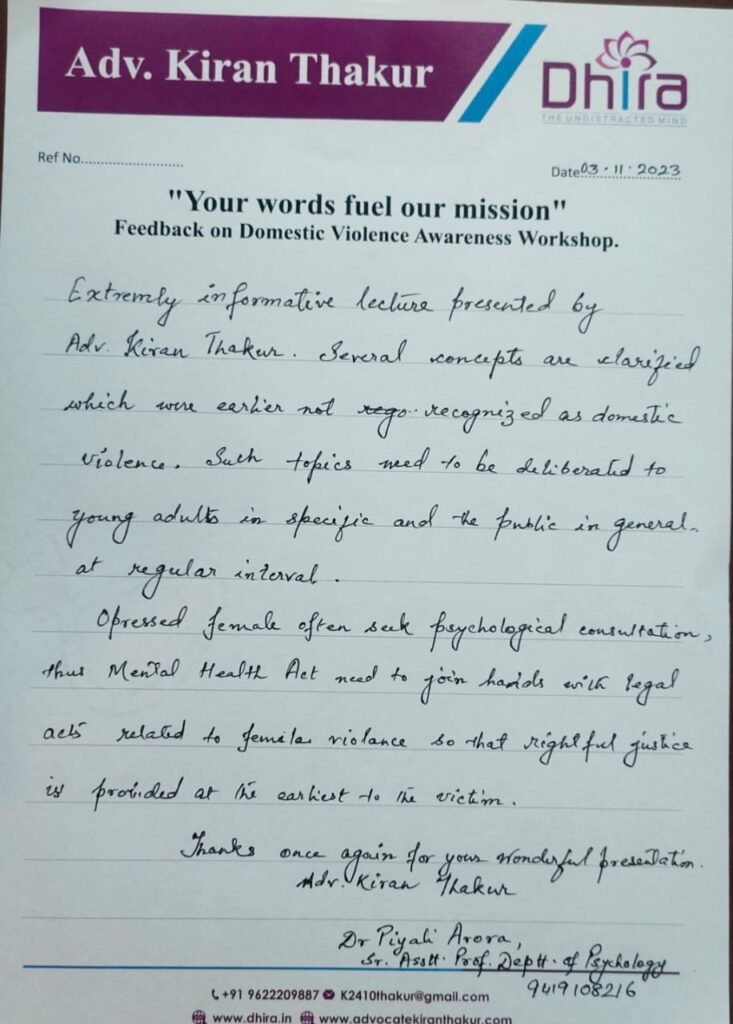 Adv. Kiran Thakur
Dhira
THE UNDISTRACTED MIND
Ref No..........................
Date03.11.2023
"Your words fuel our mission"
Feedback on Domestic Violence Awareness Workshop.
Extremly informative lecture presented by
Adv. Kiran Thakur. Several concepts are clarified
which were earlier not rego.. recognized as domestic
violence. Such topics need to be deliberated to
young adults in specific and the public in general.
at regular interval.
Opressed female often seek psychological consultation,
thus Mental Health Act need to join hands with legal
acts related to female violance so that rightful justice
is provided at the earliest to the victim.
Thanks once again for your wonderful presentation.
Adv. Kiran Thakur
Dr Piyali Arora,
Sr. Asstt. Prof. Deptt. of Psychology
9419108216
+91 9622209887 K2410thakur@gmail.com
www.dhira.in www.advocatekiranthakur.com